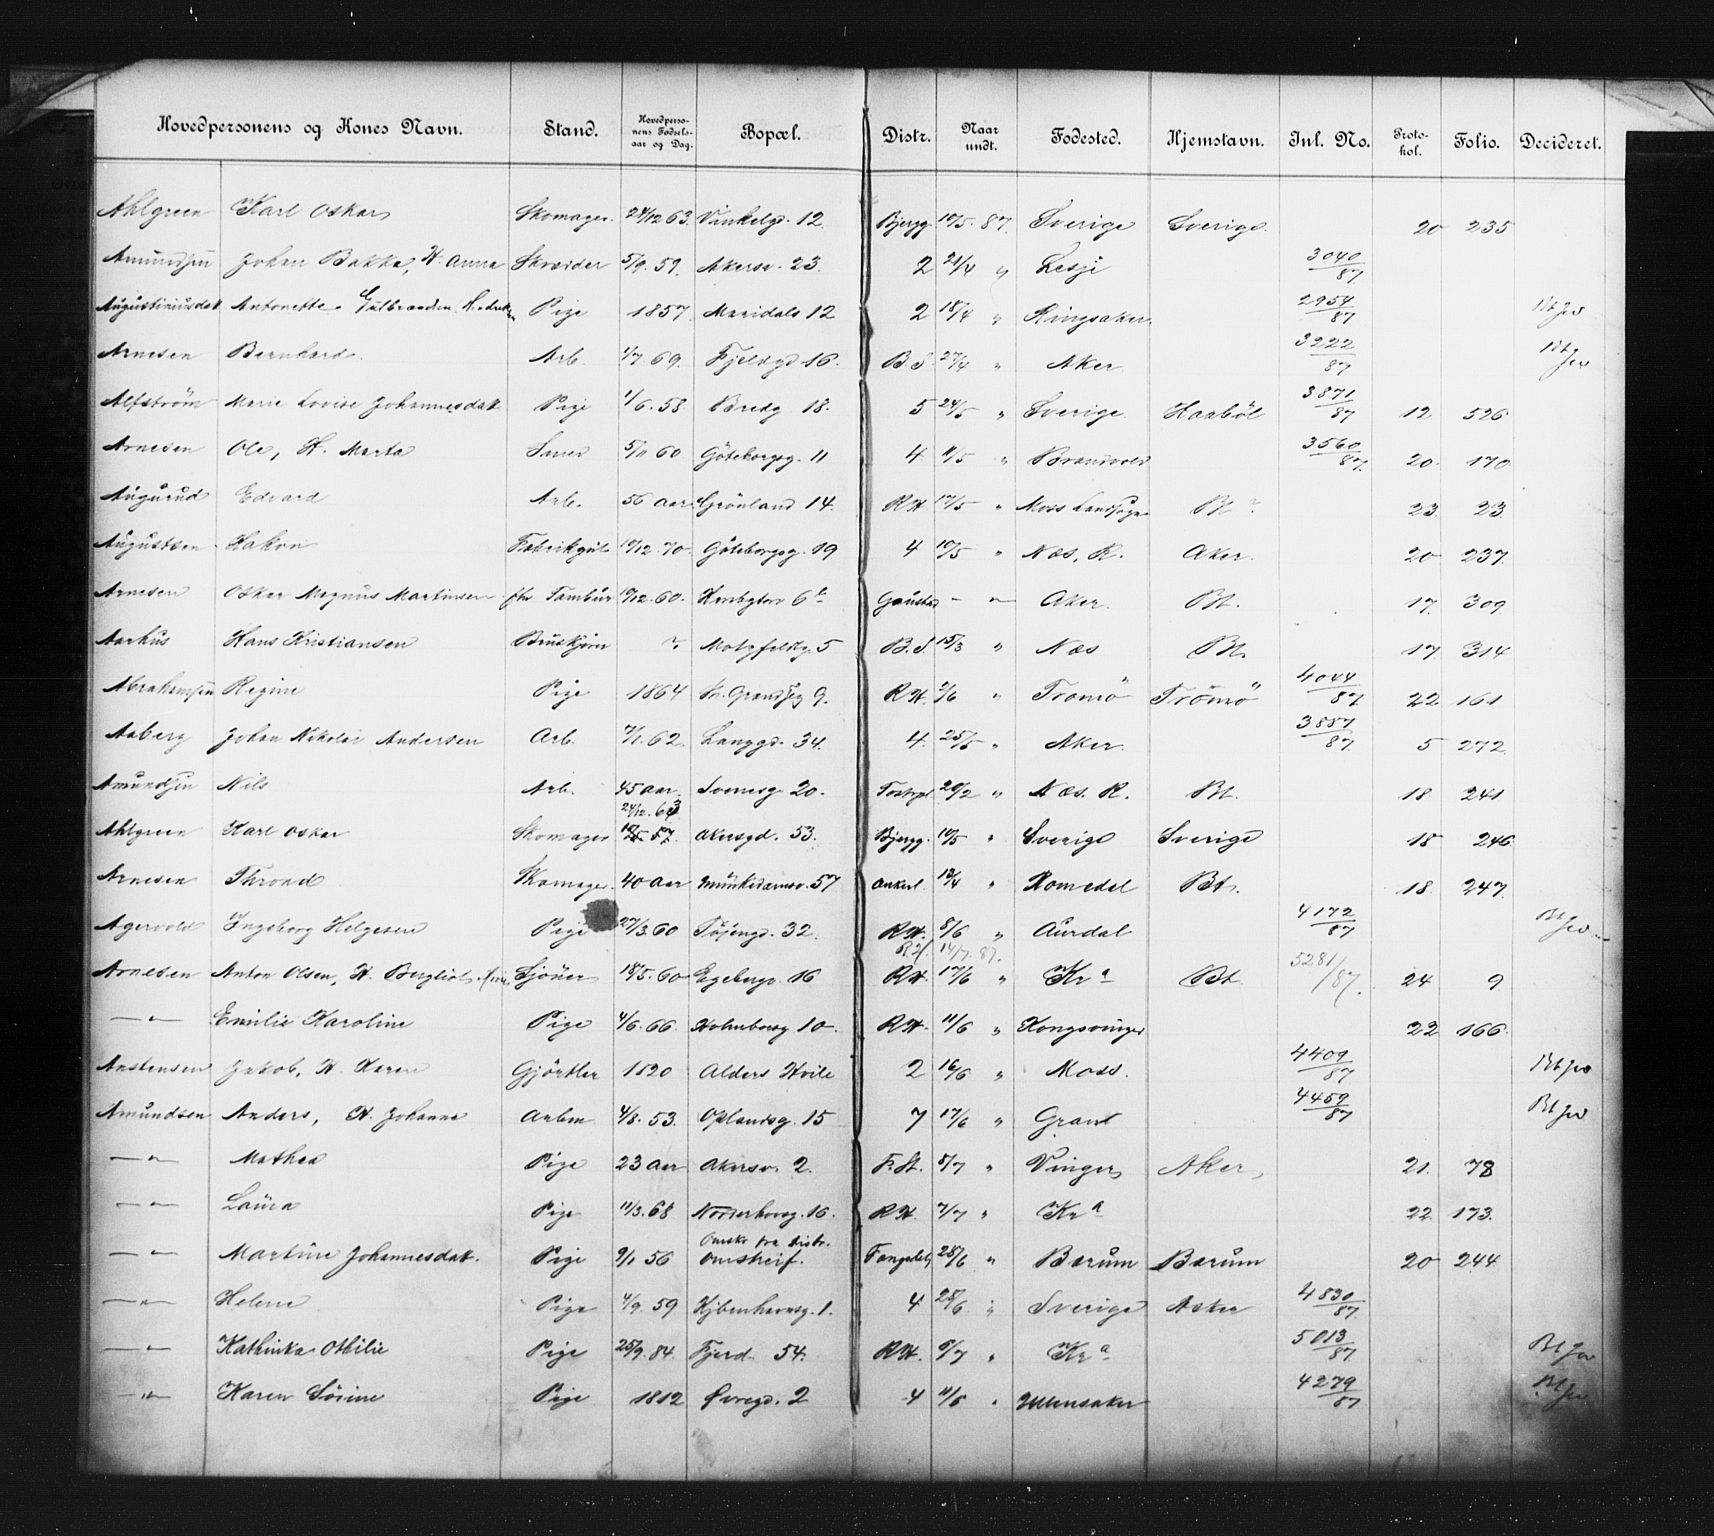 Hovedpersonens og Kones Navn. Stand. Hovedpersonens Fødselsaar og Dag. Bopæl. Distr. Naar undt. Fødested. Hjemstavn. Inl. No. Protokol. Folio. Decideret.
Ahlgreen Karl Oskar Skomager 24/12 63. Vinkelgd. 12. Bjergg. 10/5. 87. Sverige Sverige. 20 235
Amundsen Johan Bakke, H. Anna Skræder 5/9. 59. Akersv. 23. 2 21/4 " Lesje 3040/87
Augustiniusdat Antonette Gulbrandsen Pige 1857 Maridals 12 2 18/4 " Ringsaker. 2954/87 Bt Jev
Arnesen Bernhard. Arb. 1/7. 69. Fjeldgd 16. B.S. 27/4 " Aker 3222/87 Bt Jev
Alfstrøm Marie Lovise Johannesdat Pige 1/6. 58. Bredg 18. 5 24/5 " Sverige. Haabøl 3871/87 12 526
Arnesen Ole, H. Marta Smed 5/11 60 Göteborgsg. 11 4. 11/5 " Brandvold 3560/87 20. 170
Augurud Edvard Arb. 56 Aar. Grønland 14. R.H. 17/5 " Moss Landsogn Bt ? 23 23
Augustsen Hakon Fabrikgut 19/12. 70. Göteborgsg. 19 4 10/5 " Næs, R. Aker. 20 237
Arnesen Oskar Magnus Martinsen fhv Tambur 19/12. 60. 6 Gaustad — " Aker. Bt. 17. 309
Aarhus Hans Kristiansen Bruskjører ? Motzfeldtg. 5 B.S. 15/3 " Næs Bt. 17 314
Abrahamsen Regine Pige 1864 9. R.H. 2/6 " Tromö Tromö 4044/87 22 161
Aaberg Johan Nikolai Andersen Arb. 7/1. 62. Langgd. 34. 4. 25/5 " Aker. 3887/87 5 272
Amundsen Nils Arb. 45 aar. Svensg 20. 20/2 " Næs. R. Bt. 18 241
Ahlgreen Karl Oskar Skomager 24/12. 63 Akersgd. 53. Bjergg. 10/5 " Sverige Sverige 18 246
Arnesen Thrond Skomager 40 Aar Munkedamsv. 57 Ankerl. 12/4 " Romedal Bt. 18 247
Agervold Ingeborg Helgesen Pige 27/3 60 Tøjengd. 32. R.H. 8/6 " Aurdal 4172/87 Bt Jev
14/7. 87.
Arnesen Anton Olsen, H. Bergliot Sjöuer 18/5. 60 Egebergv. 16 R.H. 17/6 " Kra Bt 5281/87. 24 9
—"— Emilie Karoline Pige 4/6. 66. Holmborsg 10. R.H. 11/6 " Kongsvinger 22 166
Anstensen Jakob, H. Karen Gjörtler 1820 Alders Hvile 2 16/6 " Moss. 4409/87 Bt Jev
Amundsen Anders, H. Johanna Arbm 4/8. 53. Oplandsg. 15 7 17/6 " Gran 4459/87 Bt Jev
—"— Mathea Pige 23 Aar Akersv. 2. F.A. 5/7 " Vinger Aker 21. 78
—"— Laura Pige 11/3. 68 Norderhovsg. 16. R.H. 7/7 " Kra 22 173.
—"— Martine Johannesdat. Pige 9/1 56 Omskrif. 28/6 " Bærum Bærum 20 244
—"— Helene Pige 4/9. 59 Kjbenhavnsg. 1. 4 28/6 " Sverige Asker 4830/87.
—"— Kathinka Othilie Pige 25/9. 84. Fjerd. 54. R.H. 6/7 " Kra 5013/87 Bt Jev
—"— Karen Sörine Pige 1812 Øvregd. 2 4 11/6 " Ullensaker 4279/87 Bt Jev